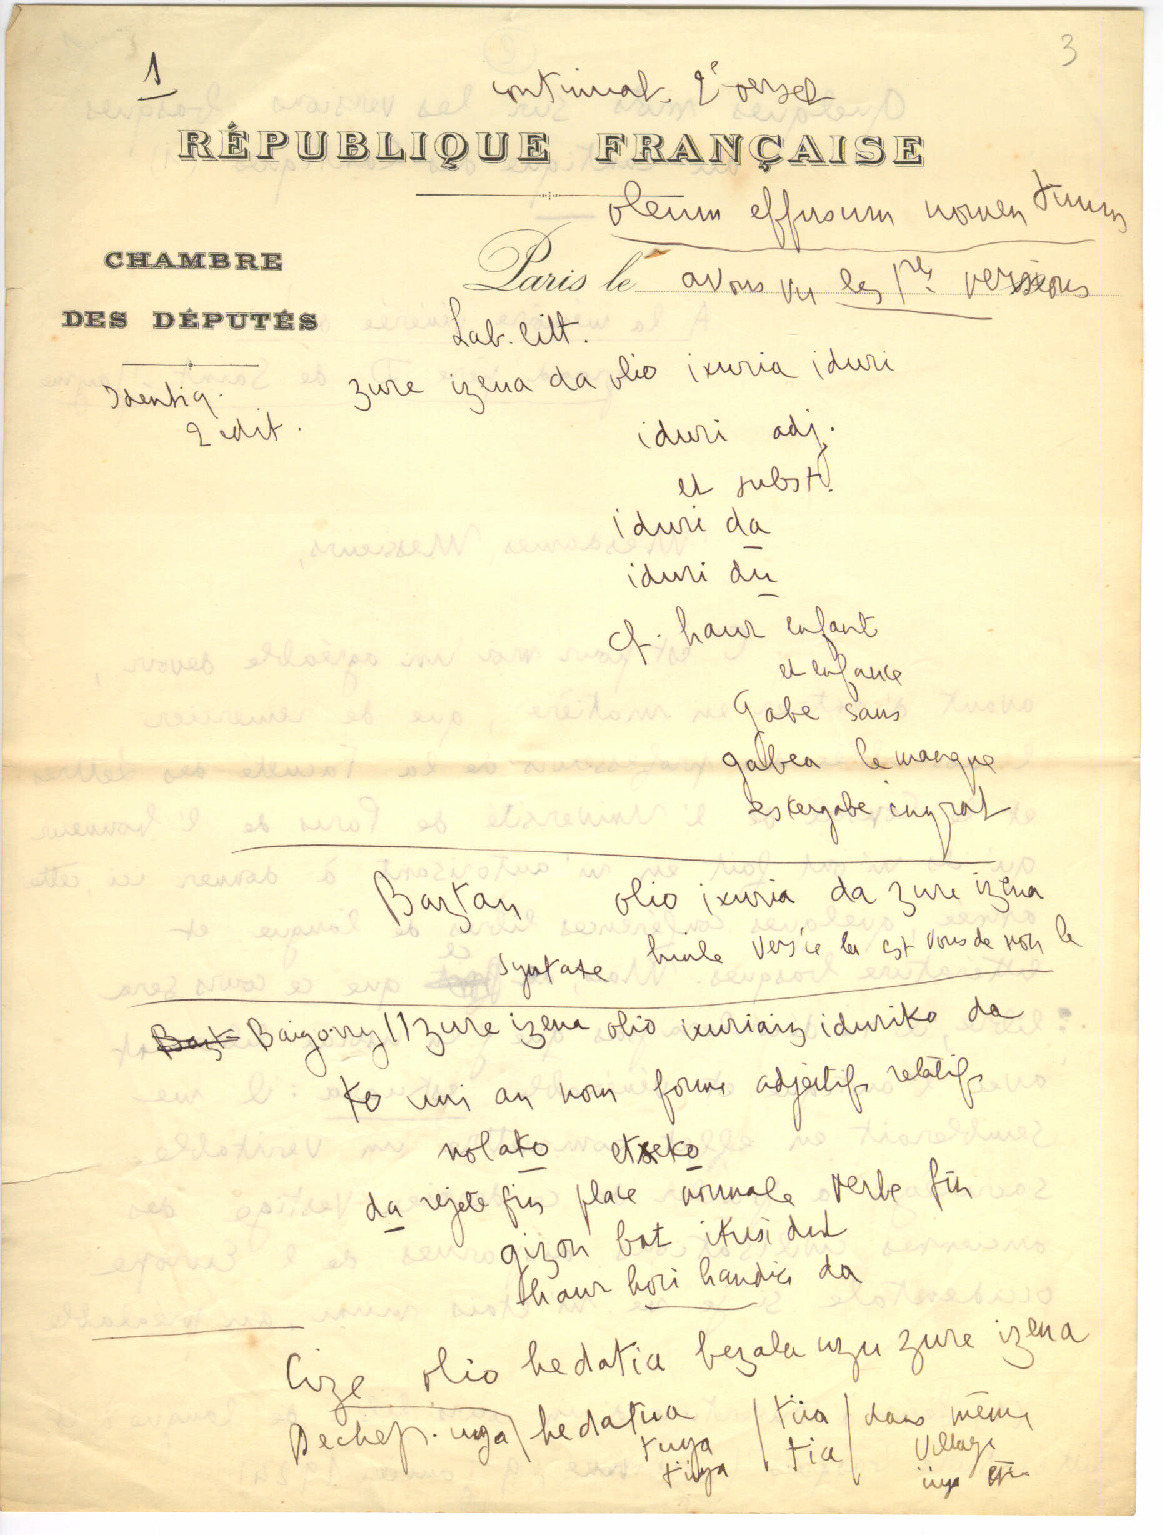 3
1
continuat. 2e verset
RÉPUBLIQUE FRANÇAISE
oleum effusum nomen tuum
CHAMBRE
DES DÉPUTÉS
Paris le avons vu les 1res versions
Lab. litt.
Identiq.
2 edit.
zure izena da olio ixuria iduri
iduri adj.
et subst.
iduri da
iduri du
cf. haur enfant
et enfance
Gabe sans
gabea le manque
eskergabe ingrat
Baztan olio ixuria da zure izena
syntaxe
Bazt Baigorry zure izena olio ixuriaren iduriko da
ko uni au nom forme adjectifs relatifs
nolako etxeko
da rejeté fin place normale verbe fin
gizon bat ikusi dut
haur hori handi da
Cize olio hedatia bezala uzu zure izena
hedatua / tüa / dans même
tuya tia village
tüya üya etc.